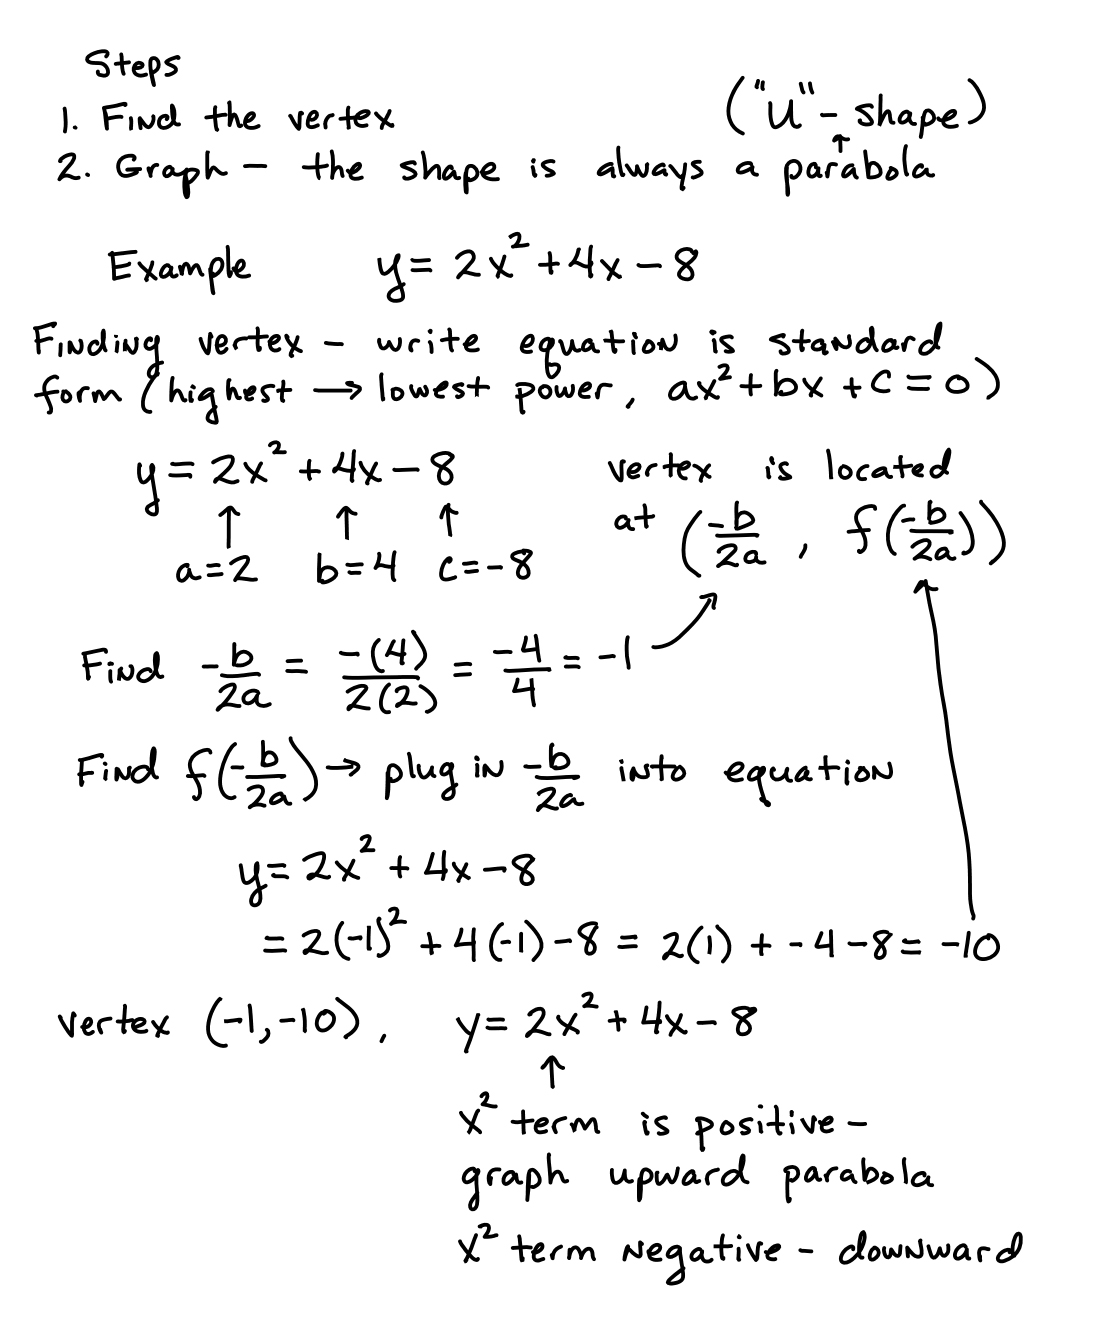 Steps
1. Find the vertex
("U"-shape)
↑
2. Graph - the shape is always a parabola
Example y = 2x² + 4x - 8
Finding vertex - write equation is standard
form (highest → lowest power, ax² + bx + c = 0)
y = 2x² + 4x - 8
↑ ↑ ↑
a=2 b=4 c=-8
vertex is located
at (-b/2a, f(-b/2a))
Find -b/2a = -(4)/2(2) = -4/4 = -1
Find f(-b/2a) → plug in -b/2a into equation
y = 2x² + 4x - 8
= 2(-1)² + 4(-1) - 8 = 2(1) + -4 - 8 = -10
vertex (-1, -10), y = 2x² + 4x - 8
↑
x² term is positive -
graph upward parabola
x² term negative - downward